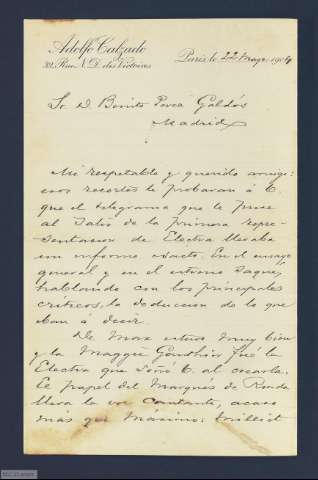 Adolfo Calzado
32, Rue N. D. des Victoires
Paris le 22 Mayo 1904
Sr D. Benito Perez Galdós
Madrid
Mi respetable y querido amigo:
esos recortes le probaran á V.
que el telegrama que le puse
al salir de la primera repre-
sentacion de Electra llevaba
un informe exacto. En el ensayo
general y en el estreno saqué,
hablando con los principales
críticos, la deduccion de lo que
iban á decir.
De Max estuvo muy bien
y la Maggie Gauthier fué la
Electra que soñó V. al crearla.
El papel del Marqués de Ronda
lleva la voz cantante, acaso
más que Máximo: